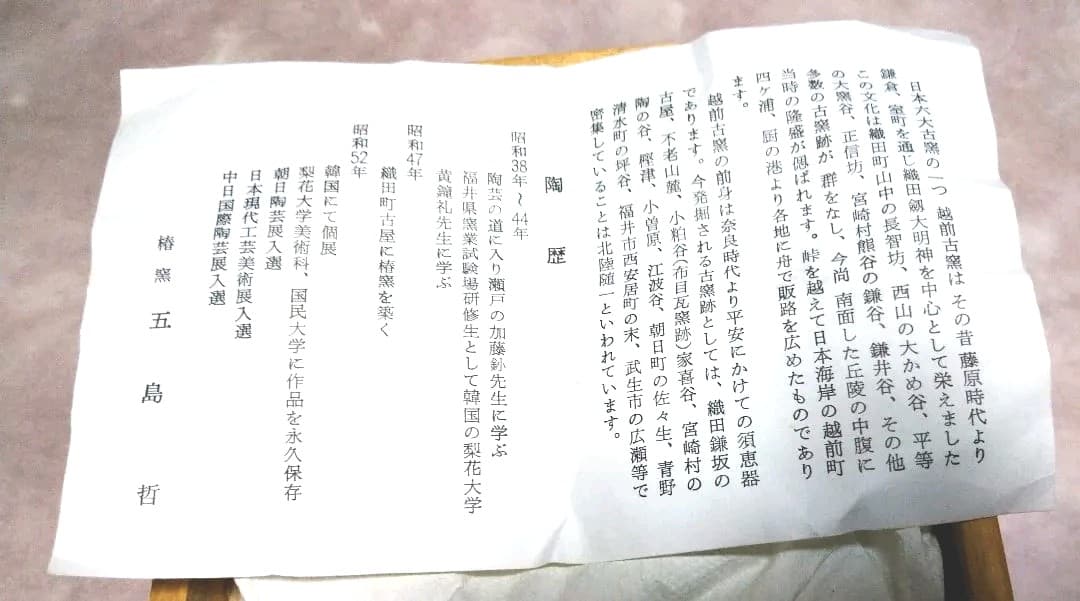 日本六大古窯の一つ 越前古窯は その昔 藤原時代より
鎌倉、室町を通じ織田劔大明神を中心として栄えました
この文化は織田町山中の長智坊、西山の大かめ谷、平等
の大窯谷、正信坊、宮崎村熊谷の鎌谷、鎌井谷、その他
多数の古窯跡が 群をなし、今尚 南面した丘陵の中腹に
当時の隆盛が偲ばれます。峠を越えて日本海岸の越前町
四ヶ浦、厨の港より各地に舟で販路を広めたものであり
ます。
越前古窯の前身は奈良時代より平安にかけての須恵器
であります。今発掘される古窯跡としては、織田鎌坂の
古屋、不老山麓、小粕谷(布目瓦窯跡)家喜谷、宮崎村の
陶の谷、樫津、小曽原、江波谷、朝日町の佐々生、青野
清水町の坪谷、福井市西安居町の末、武生市の広瀬等で
密集していることは北陸随一といわれています。
陶歴
昭和38年～44年
陶芸の道に入り瀬戸の加藤釥先生に学ぶ
福井県窯業試験場研修生として韓国の梨花大学
黄鐘礼先生に学ぶ
昭和47年
織田町古屋に椿窯を築く
昭和52年
韓国にて個展
梨花大学美術科、国民大学に作品を永久保存
朝日陶芸展入選
日本現代工芸美術展入選
中日国際陶芸展入選
椿窯 五島哲